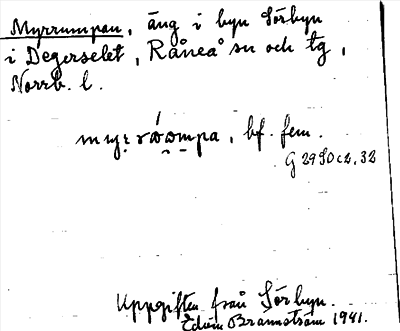 Myrrumpan, äng i byn Sörbyn
i Degerselet, Råneå sn och tg,
Norrb. l.
bf. fem.
G 29 Oct. 32
Uppgiften från Sörbyn.
Edvin Brännström 1941.